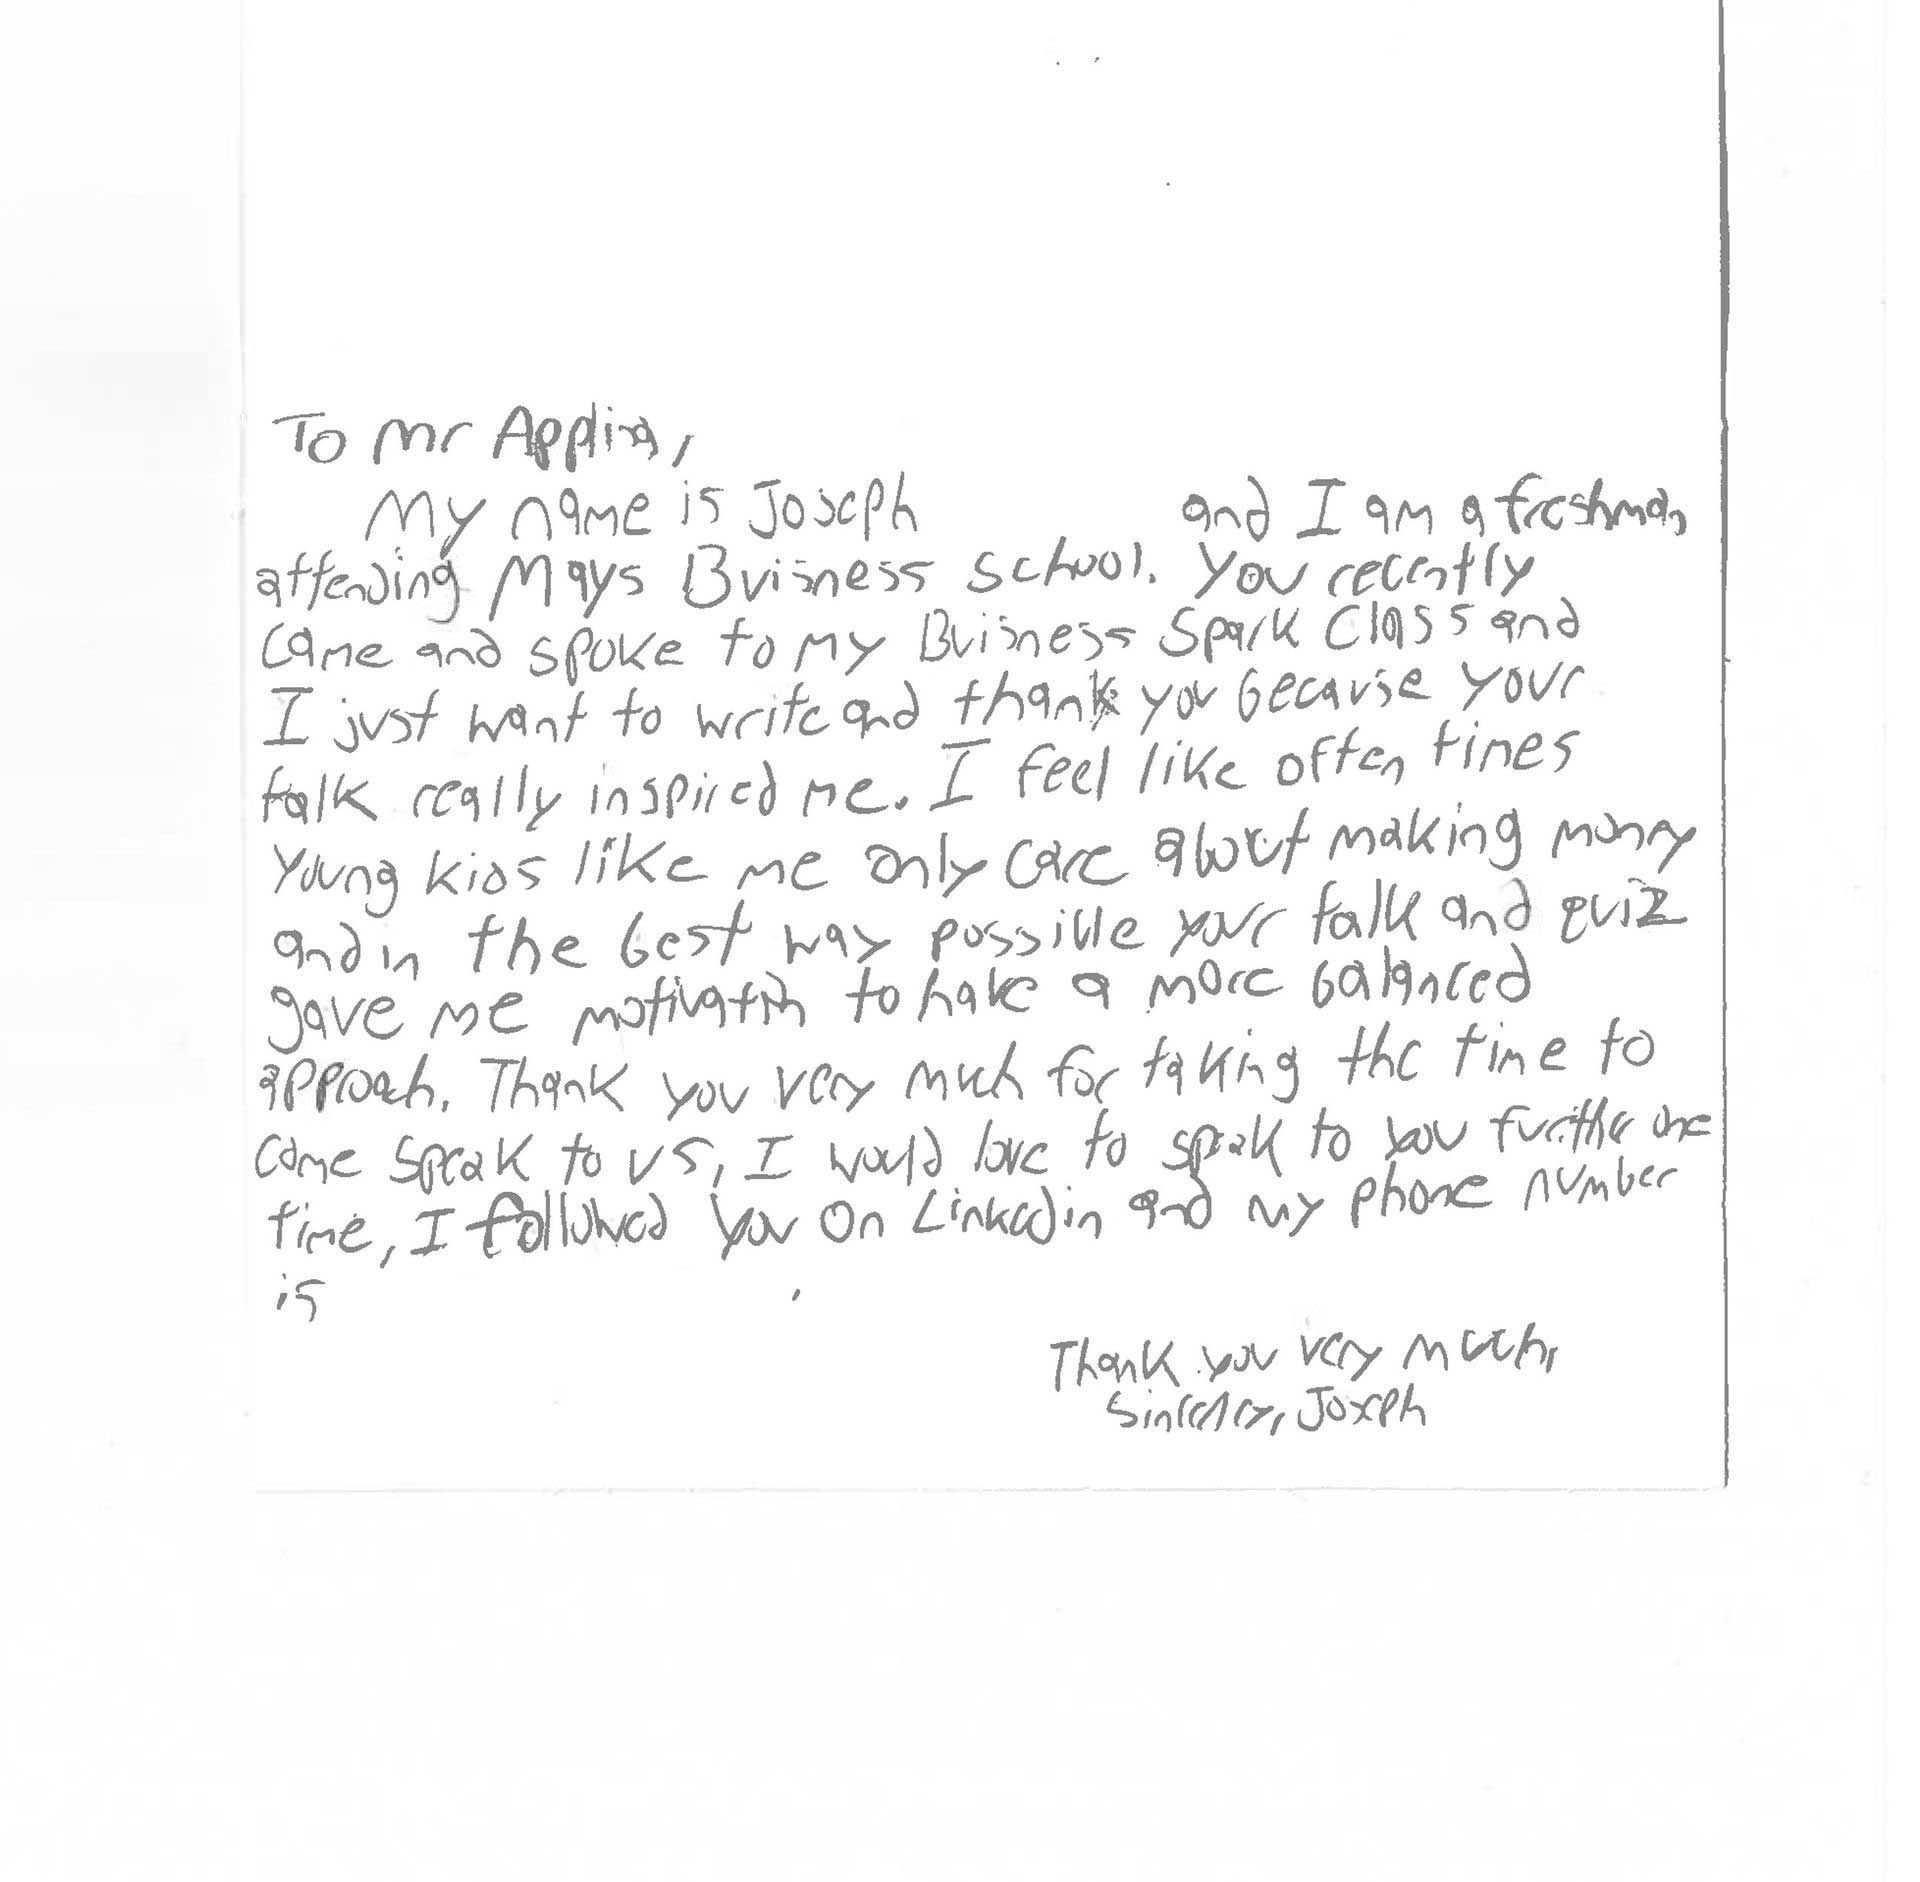 To Mr
My name is Joseph and I am a freshman
attending Mays Buisness School. You recently
came and spoke to my Buisness Spark Class and
I just want to write and thank you because your
talk really inspired me. I feel like often times
young kids like me only care about making money
and in the best way possible your talk and quiz
gave me motivation to have a more balanced
approach. Thank you very much for taking the time to
come speak to us, I would love to speak to you further one
time, I followed you on Linkedin and my phone number
is .
Thank you very much,
Sincerely, Joseph